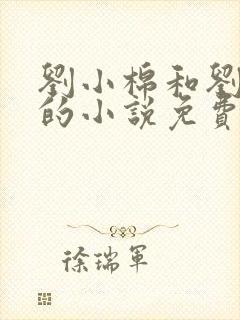 劉小棉和劉
的小說免費
徐瑞軍